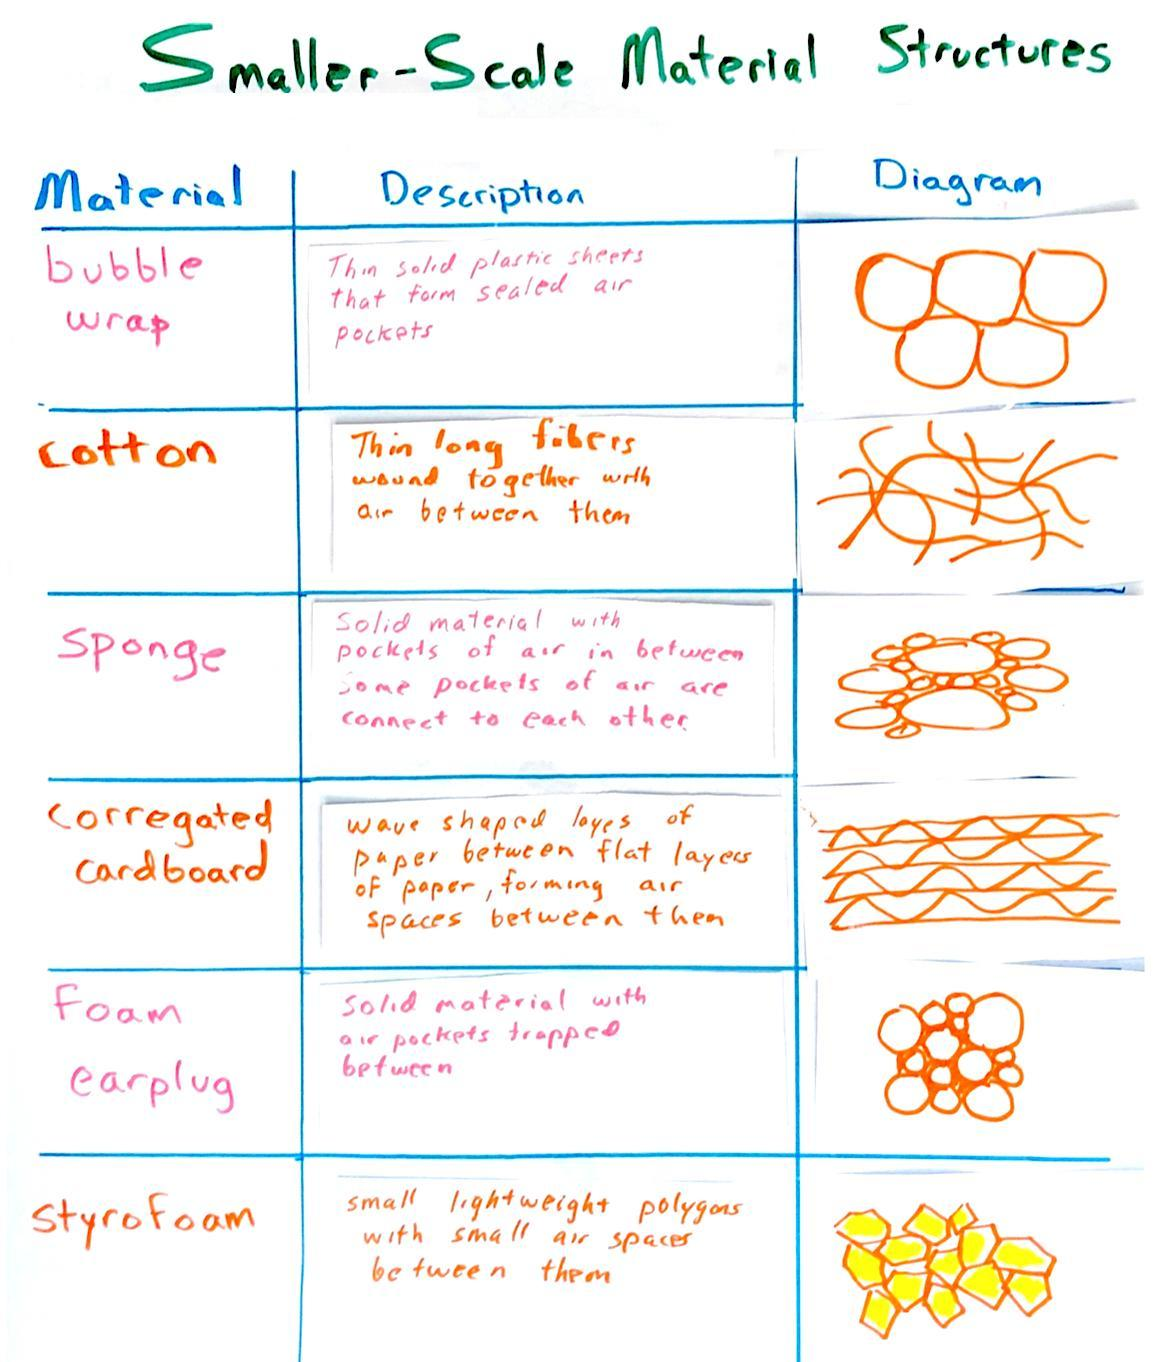 Smaller-Scale Material Structures
Material
Description
Diagram
bubble
wrap
Thin solid plastic sheets
that form sealed air
pockets
cotton
Thin long fibers
wound together with
air between them
sponge
Solid material with
pockets of air in between
some pockets of air are
connect to each other.
corregated
cardboard
wave shaped layes of
paper between flat layers
of paper, forming air
spaces between them
Foam
earplug
Solid material with
air pockets trapped
between
styrofoam
small lightweight polygons
with small air spaces
between them